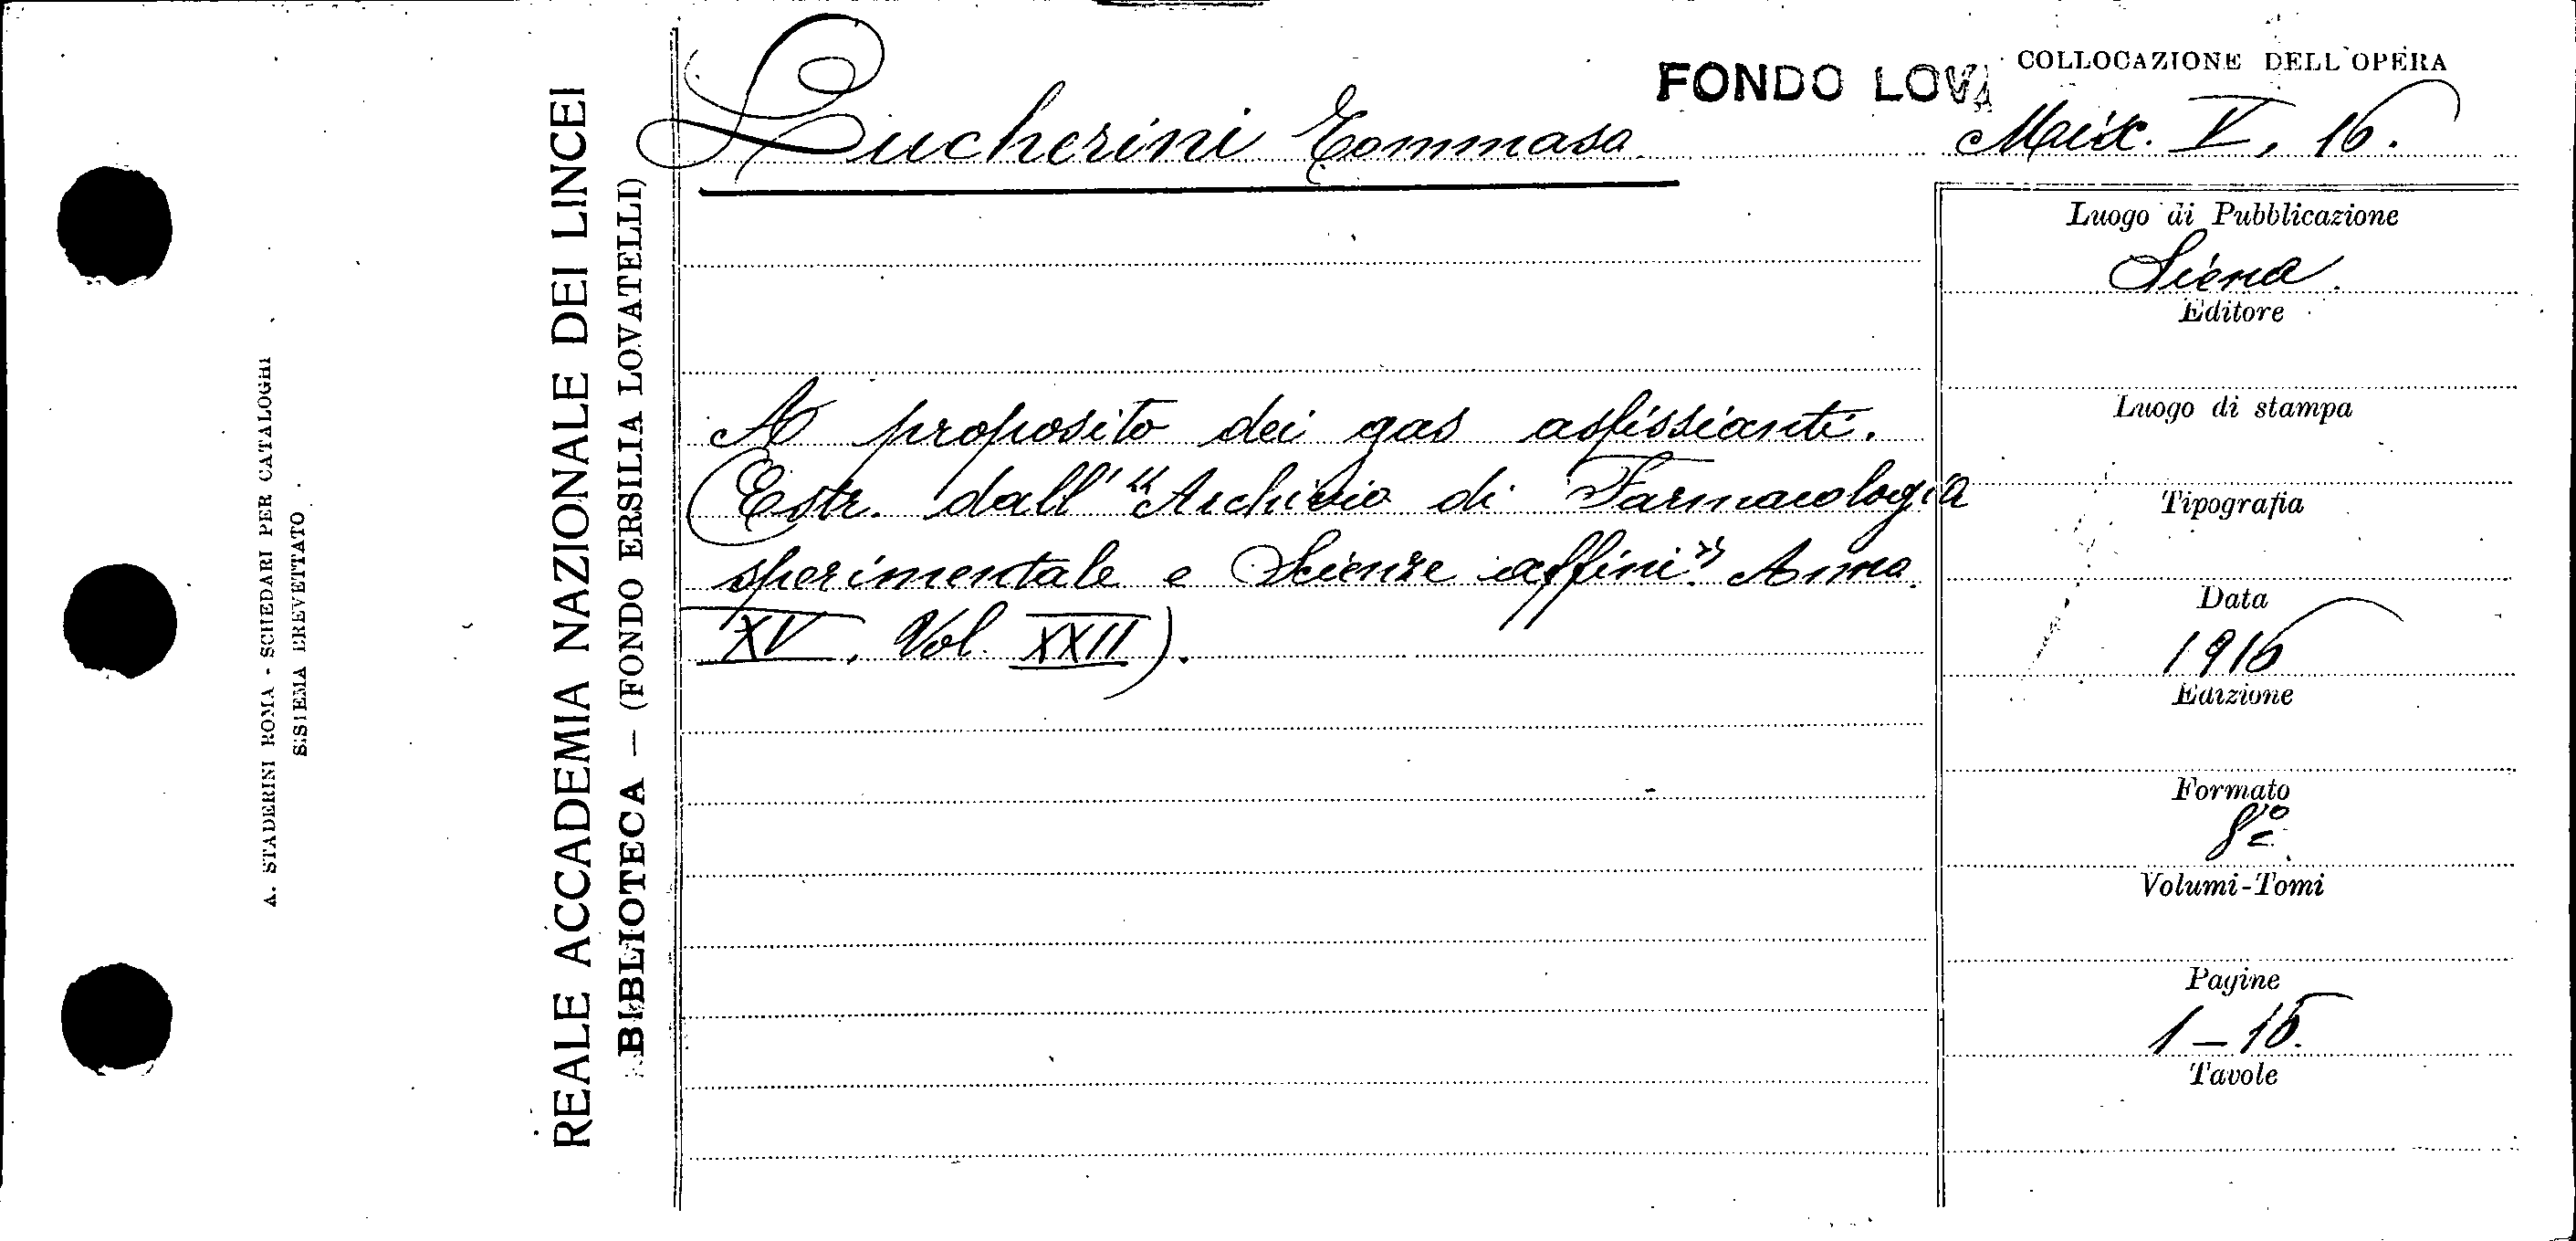 A. STADERINI ROMA - SCHEDARI PER CATALOGHI
SISTEMA BREVETTATO
REALE ACCADEMIA NAZIONALE DEI LINCEI
BIBLIOTECA — (FONDO ERSILIA LOVATELLI)
Lucherini Tommaso
FONDO LOVA
COLLOCAZIONE DELL'OPERA
V, 16.
A proposito dei gas asfissianti.
(Estr. dall' "Archivio di Farmacologia
sperimentale e Scienze affini". Anno
XV, Vol. XXII).
Luogo di Pubblicazione
Siena.
Editore
Luogo di stampa
Tipografia
Data
1916
Edizione
Formato
8º
Volumi-Tomi
Pagine
1-16.
Tavole